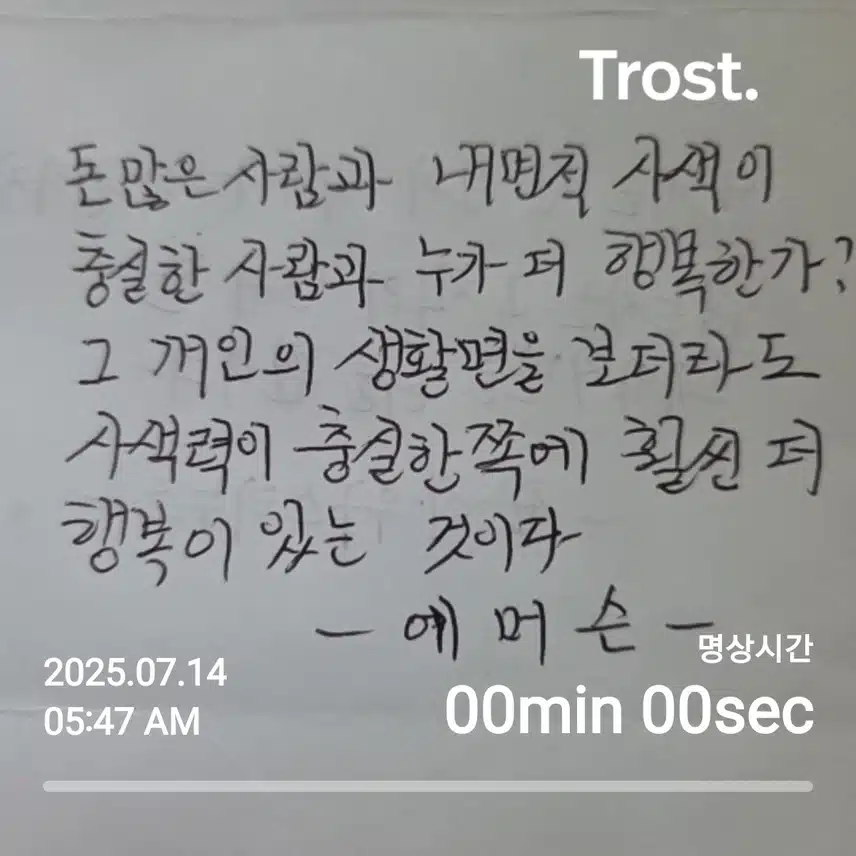 Trost.
돈많은 사람과 내면적 사색이
충실한 사람과 누가 더 행복한가?
그 개인의 생활면을 보더라도
사색력이 충실한쪽에 훨씬 더
행복이 있는 것이다
- 에머슨 -
명상시간
2025.07.14
05:47 AM
00min 00sec